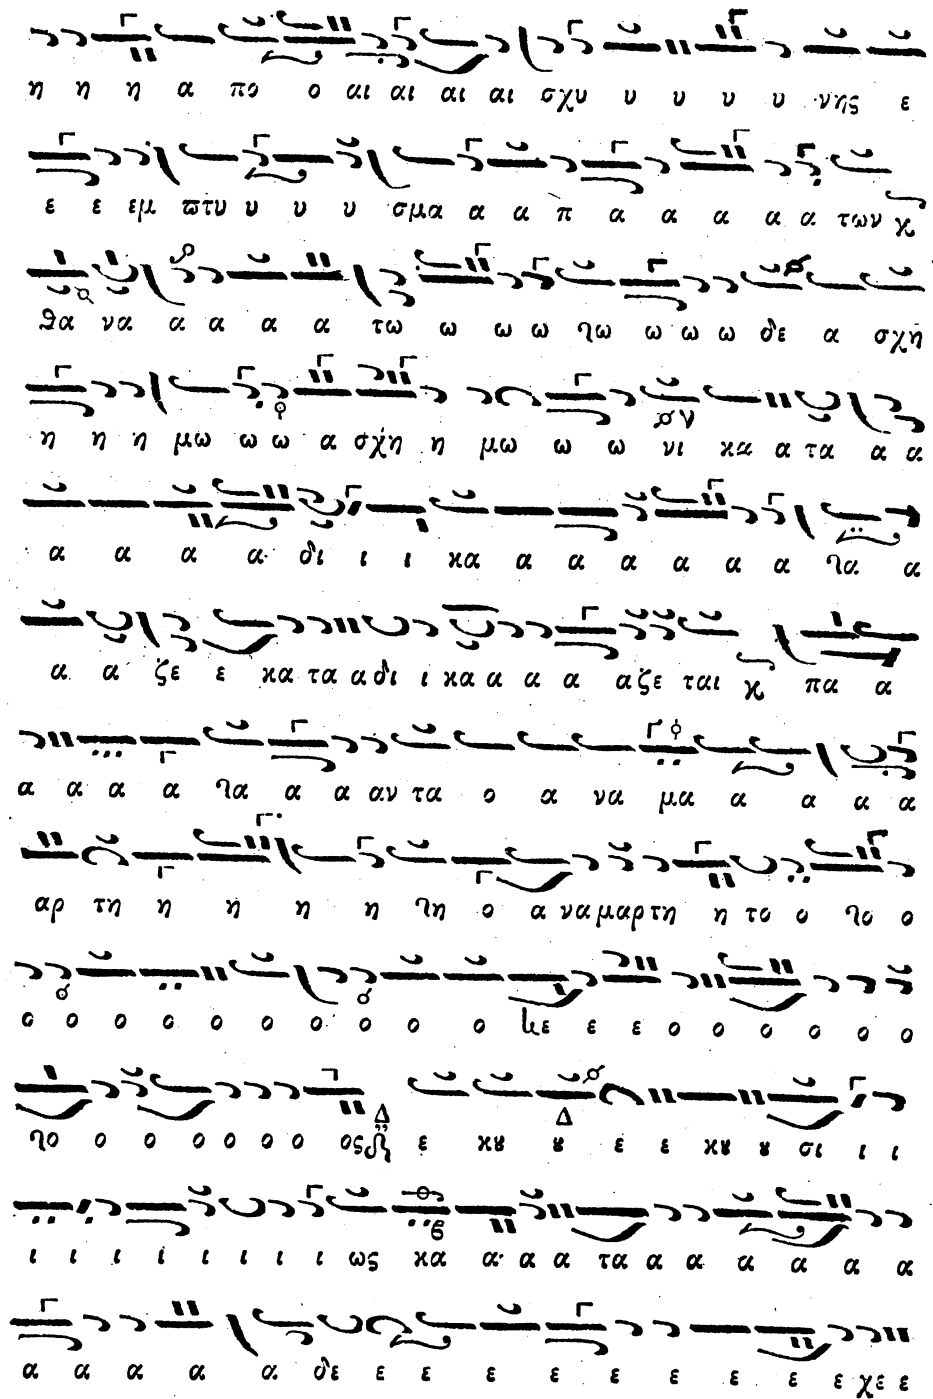 η η η α πο ο αι αι αι αι σχυ υ υ υ υ νης ε
ε ε εμ πτυ υ υ υ σμα α α π α α α α α των ϗ
θα να α α α α τω ω ω ω γω ω ω ω δε α σχη
η η η μω ω ω α σχη η μω ω ω νι κα α τα α α
α α α α δι ι ι κα α α α α α α γα α
α α ζε ε κα τα α δι ι κα α α α α ζε ται ϗ πα α
α α α α γα α α αν τα ο α να μα α α α α
αρ τη η η η η γη ο α να μαρ τη η το ο γο ο
ο ο ο ο ο ο ο ο ο ο κε ε ε ο ο ο ο ο ο
γο ο ο ο ο ο ο ος Δ ε κυ Δ υ ε ε κυ υ σι ι ι
ι ι ι ι ι ι ι ι ως κα α α α τα α α α α α α
α α α α α δε ε ε ε ε ε ε ε ε ε χε ε